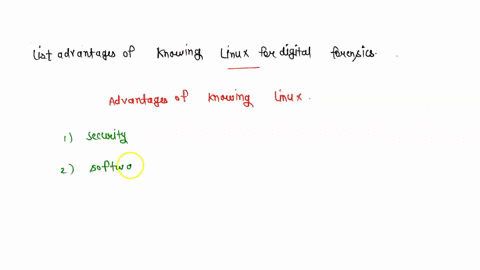 List advantages of knowing Linux for digital forensics.
Advantages of knowing Linux.
1) security
2) softwa